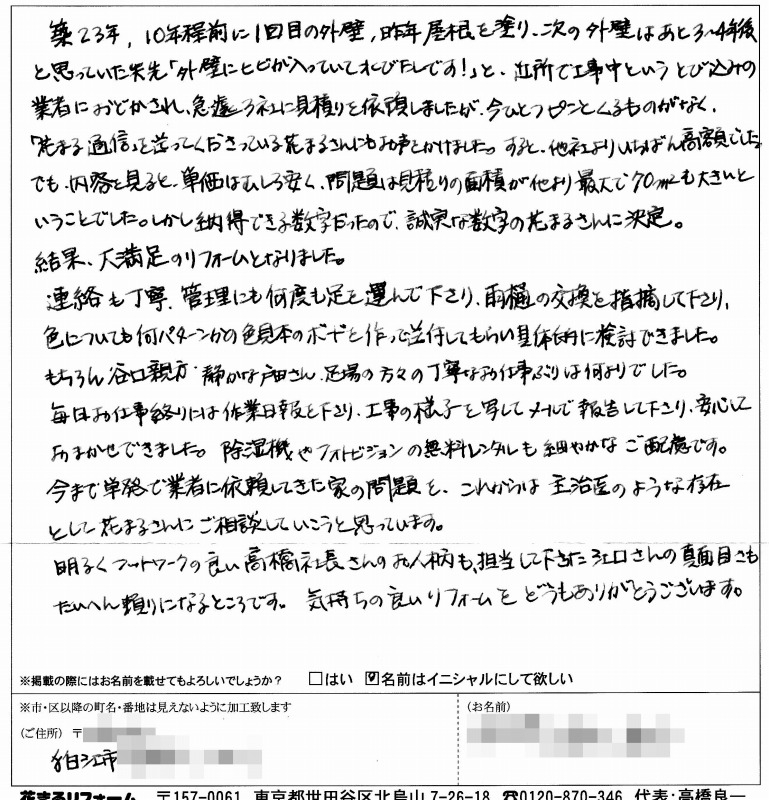 築23年，10年程前に1回目の外壁，昨年屋根を塗り、次の外壁はあと3〜4年後
と思っていた矢先「外壁にヒビが入っていてオレびたしです！」と、近所で工事中というとび込みの
業者におどかされ、急遽3社に見積りを依頼しましたが、今ひとつピンとくるものがなく、
「花まる通信」を送ってくださっている花まるさんにもお声をかけました。すると、他社よりいちばん高額でした。
でも、内容を見ると、単価はむしろ安く、問題は見積りの面積が他より最大で70㎡も大きいと
いうことでした。しかし納得できる数字だったので、誠実な数字の花まるさんに決定。
結果、大満足のリフォームとなりました。
連絡も丁寧、管理にも何度も足を運んで下さり、雨樋の交換を指摘して下さり、
色についても何パターンかの色見本のボードを作って送付してもらい具体的に検討できました。
もちろん谷口親方、静かな戸田さん、足場の方々の丁寧なお仕事ぶりは何よりでした。
毎日お仕事終りには作業日報を下さり、工事の様子を写してメールで報告して下さり、安心して
おまかせできました。除湿機やフォトビジョンの無料レンタルも細やかなご配慮です。
今まで単発で業者に依頼してきた家の問題を、これからは主治医のような存在
として花まるさんにご相談していこうと思っています。
明るくフットワークの良い高橋社長さんのお人柄も、担当して下さった江口さんの真面目さも
たいへん頼りになるところです。気持ちの良いリフォームをどうもありがとうございます。
※掲載の際にはお名前を載せてもよろしいでしょうか？ □はい ☑名前はイニシャルにして欲しい
※市・区以降の町名・番地は見えないように加工致します
(ご住所) 〒
狛江市
(お名前)
花まるリフォーム 〒157-0061 東京都世田谷区北烏山7-26-18 ☎0120-870-346 代表：高橋良一